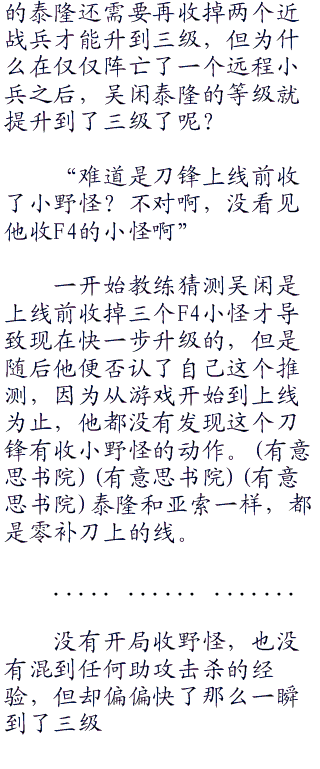 的泰隆还需要再收掉两个近
战兵才能升到三级，但为什
么在仅仅阵亡了一个远程小
兵之后，吴闲泰隆的等级就
提升到了三级了呢？
“难道是刀锋上线前收
了小野怪？不对啊，没看见
他收F4的小怪啊”
一开始教练猜测吴闲是
上线前收掉三个F4小怪才导
致现在快一步升级的，但是
随后他便否认了自己这个推
测，因为从游戏开始到上线
为止，他都没有发现这个刀
锋有收小野怪的动作。(有意
思书院)(有意思书院)(有意
思书院)泰隆和亚索一样，都
是零补刀上的线。
..... ...... .......
没有开局收野怪，也没
有混到任何助攻击杀的经
验，但却偏偏快了那么一瞬
到了三级